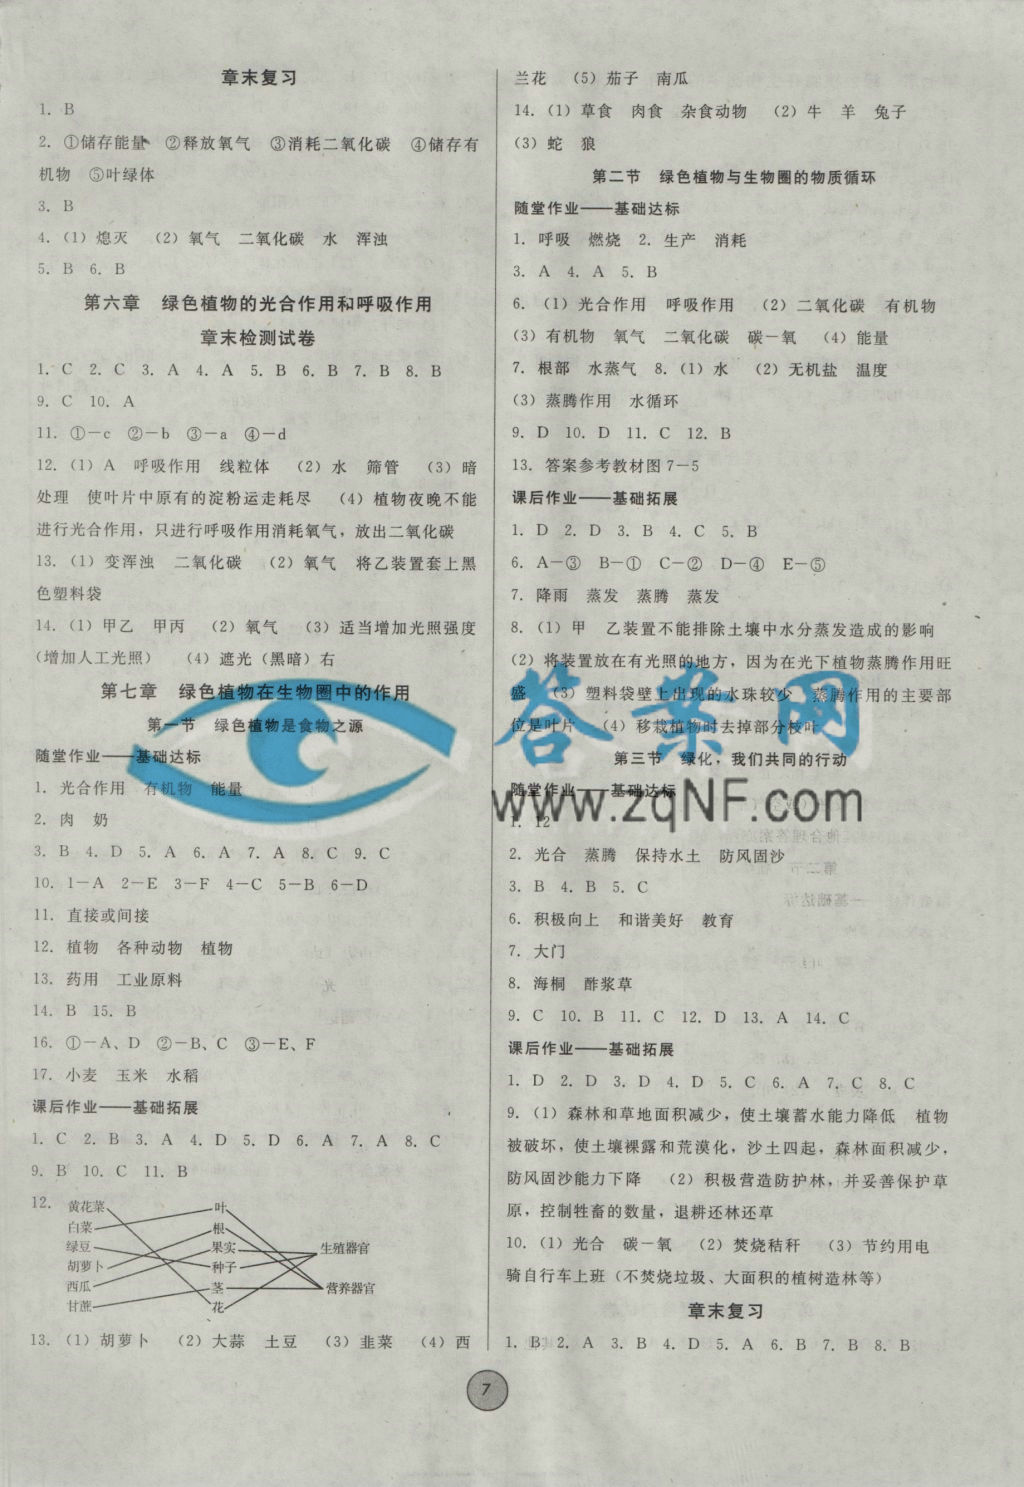 章末复习
1. B
2. ①储存能量 ②释放氧气 ③消耗二氧化碳 ④储存有
机物 ⑤叶绿体
3. B
4. (1) 熄灭 (2) 氧气 二氧化碳 水 浑浊
5. B 6. B
第六章 绿色植物的光合作用和呼吸作用
章末检测试卷
1. C 2. C 3. A 4. A 5. B 6. B 7. B 8. B
9. C 10. A
11. ①－c ②－b ③－a ④－d
12. (1) A 呼吸作用 线粒体 (2) 水 筛管 (3) 暗
处理 使叶片中原有的淀粉运走耗尽 (4) 植物夜晚不能
进行光合作用，只进行呼吸作用消耗氧气，放出二氧化碳
13. (1) 变浑浊 二氧化碳 (2) 氧气 将乙装置套上黑
色塑料袋
14. (1) 甲乙 甲丙 (2) 氧气 (3) 适当增加光照强度
(增加人工光照) (4) 遮光 (黑暗) 右
第七章 绿色植物在生物圈中的作用
第一节 绿色植物是食物之源
随堂作业——基础达标
1. 光合作用 有机物 能量
2. 肉 奶
3. B 4. D 5. A 6. A 7. A 8. C 9. C
10. 1－A 2－E 3－F 4－C 5－B 6－D
11. 直接或间接
12. 植物 各种动物 植物
13. 药用 工业原料
14. B 15. B
16. ①－A、D ②－B、C ③－E、F
17. 小麦 玉米 水稻
课后作业——基础拓展
1. C 2. B 3. A 4. D 5. D 6. A 7. A 8. C
9. B 10. C 11. B
12. 黄花菜 叶
白菜 根
绿豆 果实 生殖器官
胡萝卜 种子
西瓜 茎 营养器官
甘蔗 花
13. (1) 胡萝卜 (2) 大蒜 土豆 (3) 韭菜 (4) 西
兰花 (5) 茄子 南瓜
14. (1) 草食 肉食 杂食动物 (2) 牛 羊 兔子
(3) 蛇 狼
第二节 绿色植物与生物圈的物质循环
随堂作业——基础达标
1. 呼吸 燃烧 2. 生产 消耗
3. A 4. A 5. B
6. (1) 光合作用 呼吸作用 (2) 二氧化碳 有机物
(3) 有机物 氧气 二氧化碳 碳－氧 (4) 能量
7. 根部 水蒸气 8. (1) 水 (2) 无机盐 温度
(3) 蒸腾作用 水循环
9. D 10. D 11. C 12. B
13. 答案参考教材图7－5
课后作业——基础拓展
1. D 2. D 3. B 4. C 5. B
6. A－③ B－① C－② D－④ E－⑤
7. 降雨 蒸发 蒸腾 蒸发
8. (1) 甲 乙装置不能排除土壤中水分蒸发造成的影响
(2) 将装置放在有光照的地方，因为在光下植物蒸腾作用旺
盛 (3) 塑料袋壁上出现的水珠较少 蒸腾作用的主要部
位是叶片 (4) 移栽植物时去掉部分枝叶
第三节 绿化，我们共同的行动
随堂作业——基础达标
1. 12
2. 光合 蒸腾 保持水土 防风固沙
3. B 4. B 5. C
6. 积极向上 和谐美好 教育
7. 大门
8. 海桐 酢浆草
9. C 10. B 11. C 12. D 13. A 14. C
课后作业——基础拓展
1. D 2. D 3. D 4. D 5. C 6. A 7. C 8. C
9. (1) 森林和草地面积减少，使土壤蓄水能力降低 植物
被破坏，使土壤裸露和荒漠化，沙土四起，森林面积减少，
防风固沙能力下降 (2) 积极营造防护林，并妥善保护草
原，控制牲畜的数量，退耕还林还草
10. (1) 光合 碳－氧 (2) 焚烧秸秆 (3) 节约用电
骑自行车上班 (不焚烧垃圾、大面积的植树造林等)
章末复习
1. B 2. A 3. B 4. D 5. A 6. B 7. B 8. B
7
答案网
www.zqNF.com